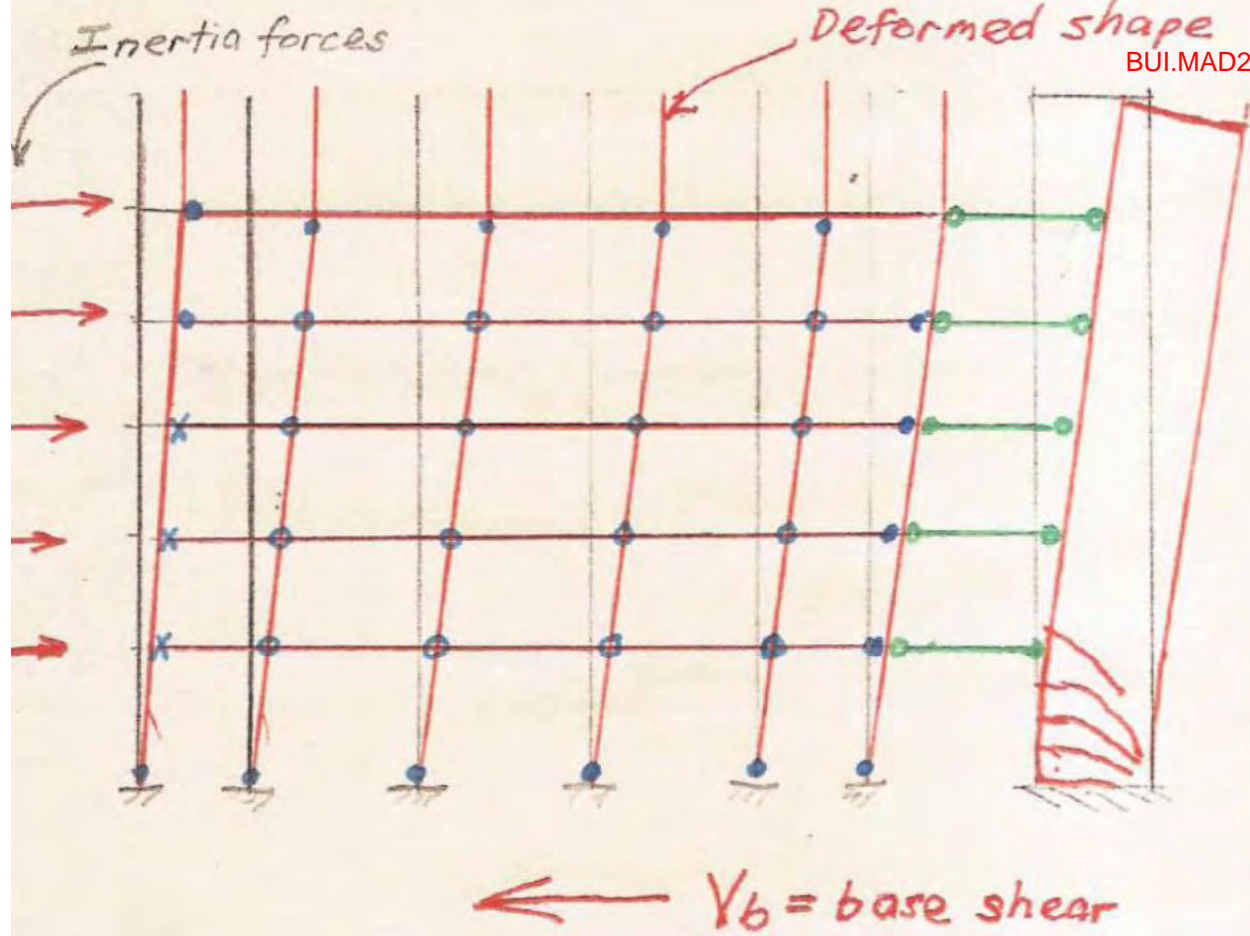 Inertia forces
Deformed shape
BUI.MAD2
Vb = base shear